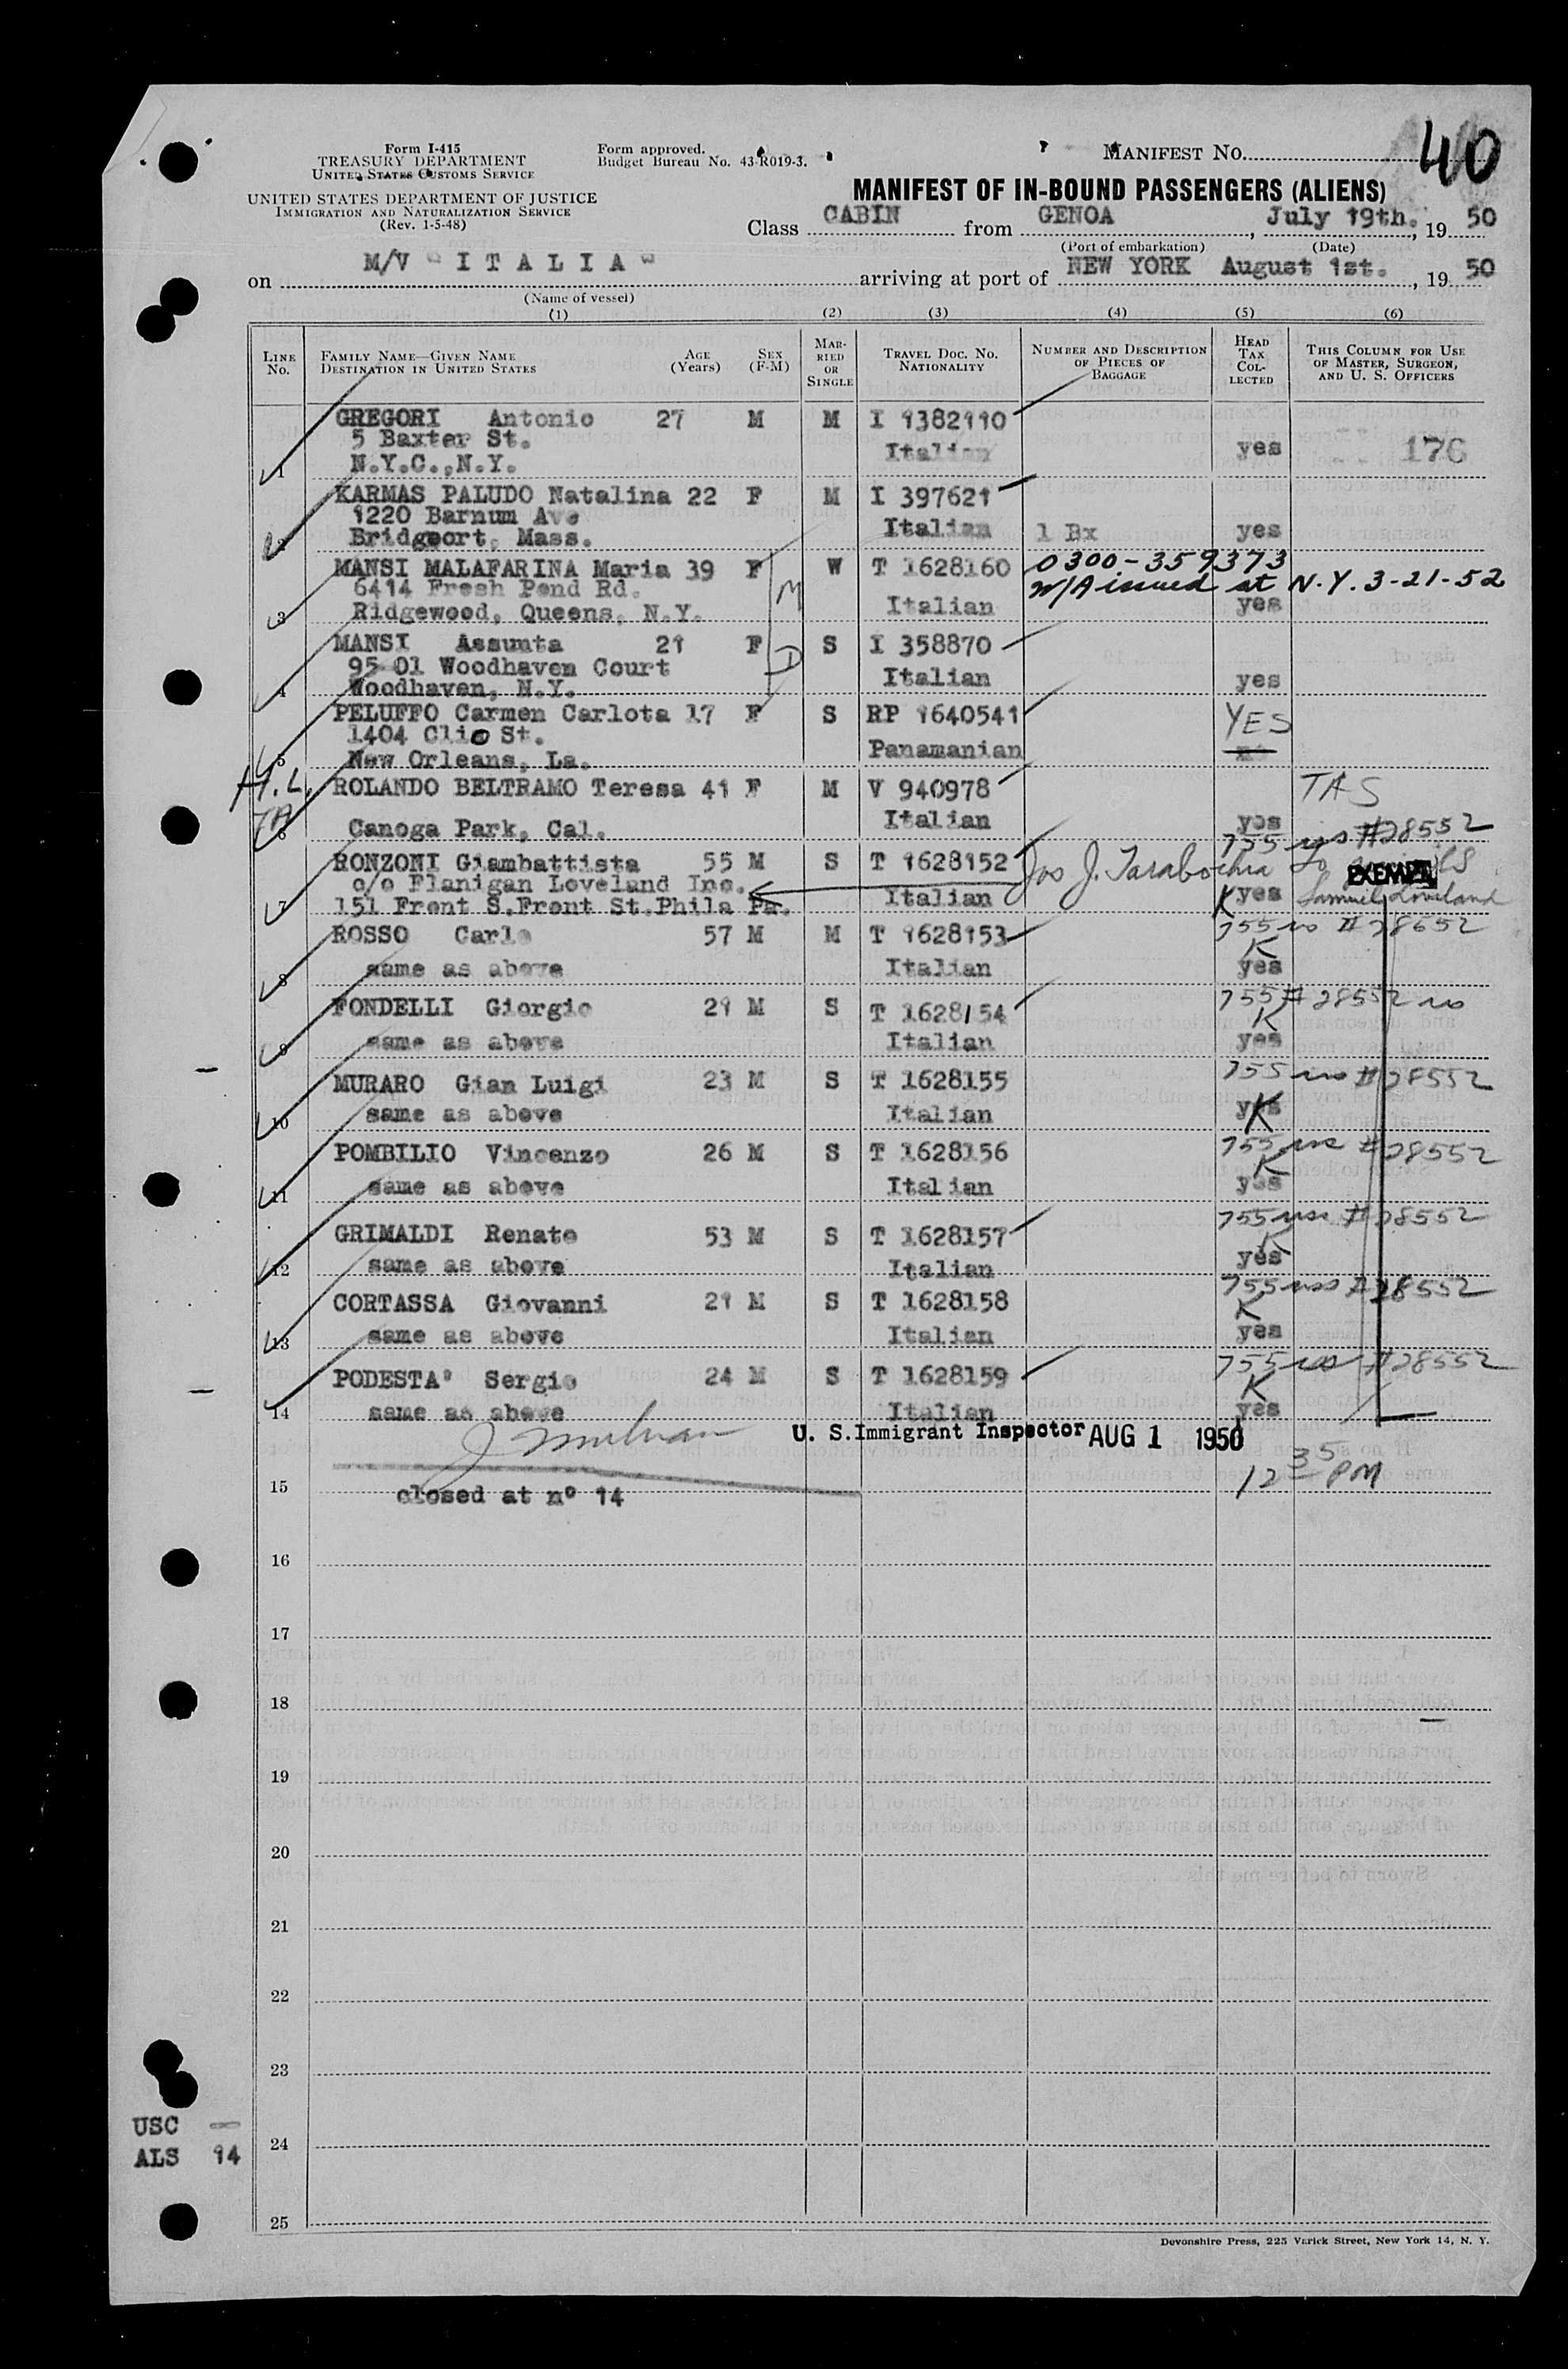 40
Form I-415
TREASURY DEPARTMENT
UNITED STATES CUSTOMS SERVICE
Form approved.
Budget Bureau No. 43-R019-3.
MANIFEST NO.
UNITED STATES DEPARTMENT OF JUSTICE
IMMIGRATION AND NATURALIZATION SERVICE
(Rev. 1-5-48)
MANIFEST OF IN-BOUND PASSENGERS (ALIENS)
Class CABIN from GENOA, July 19th., 19 50
(Port of embarkation) (Date)
on M/V "ITALIA" arriving at port of NEW YORK August 1st., 19 50
(Name of vessel)
(1) (2) (3) (4) (5) (6)
LINE NO. FAMILY NAME—GIVEN NAME DESTINATION IN UNITED STATES AGE (Years) SEX (F-M) MARRIED OR SINGLE TRAVEL DOC. NO. NATIONALITY NUMBER AND DESCRIPTION OF PIECES OF BAGGAGE HEAD TAX COLLECTED THIS COLUMN FOR USE OF MASTER, SURGEON, AND U. S. OFFICERS
GREGORI Antonio 27 M M I 1382110
5 Baxter St. Italian yes 176
1 N.Y.C.,N.Y.
KARMAS PALUDO Natalina 22 F M I 397621
1220 Barnum Ave Italian 1 Bx yes
2 Bridgeport, Mass.
MANSI MALAFARINA Maria 39 F W T 1628160 0300-359373
6414 Fresh Pond Rd. M W/A issued at N.Y. 3-21-52
3 Ridgewood, Queens, N.Y. Italian yes
MANSI Assunta 21 F S I 358870
95-01 Woodhaven Court D Italian yes
4 Woodhaven, N.Y.
PELUFFO Carmen Carlota 17 F S RP 1640541 YES
1404 Clio St. Panamanian
5 New Orleans, La.
H.L. ROLANDO BELTRAMO Teresa 41 F M V 940978 TAS
TA Italian yes
6 Canoga Park, Cal. 755 #28552
RONZONI Giambattista 55 M S T 1628152 Jos J. Tarabochia
c/o Flanigan Loveland Inc. Italian K yes EXEMPT
7 151 Front S.Front St.Phila Pa. Samuel Loveland
ROSSO Carlo 57 M M T 1628153 755 # 28652
8 same as above Italian K yes
FONDELLI Giorgio 21 M S T 1628154 755 # 28552
9 same as above Italian K yes
MURARO Gian Luigi 23 M S T 1628155 755 # 28552
10 same as above Italian yes K
POMBILIO Vincenzo 26 M S T 1628156 755 # 28552
11 same as above Italian K yes
GRIMALDI Renato 53 M S T 1628157 755 # 28552
12 same as above Italian K yes
CORTASSA Giovanni 21 M S T 1628158 755 # 28552
13 same as above Italian K yes
PODESTA' Sergio 24 M S T 1628159 755 # 28552
14 same as above Italian K yes
U. S. Immigrant Inspector AUG 1 1950
12 35 PM
15 closed at nº 14
16
17
18
19
20
21
22
23
USC —
24
ALS 14
25
Devonshire Press, 225 Varick Street, New York 14, N. Y.